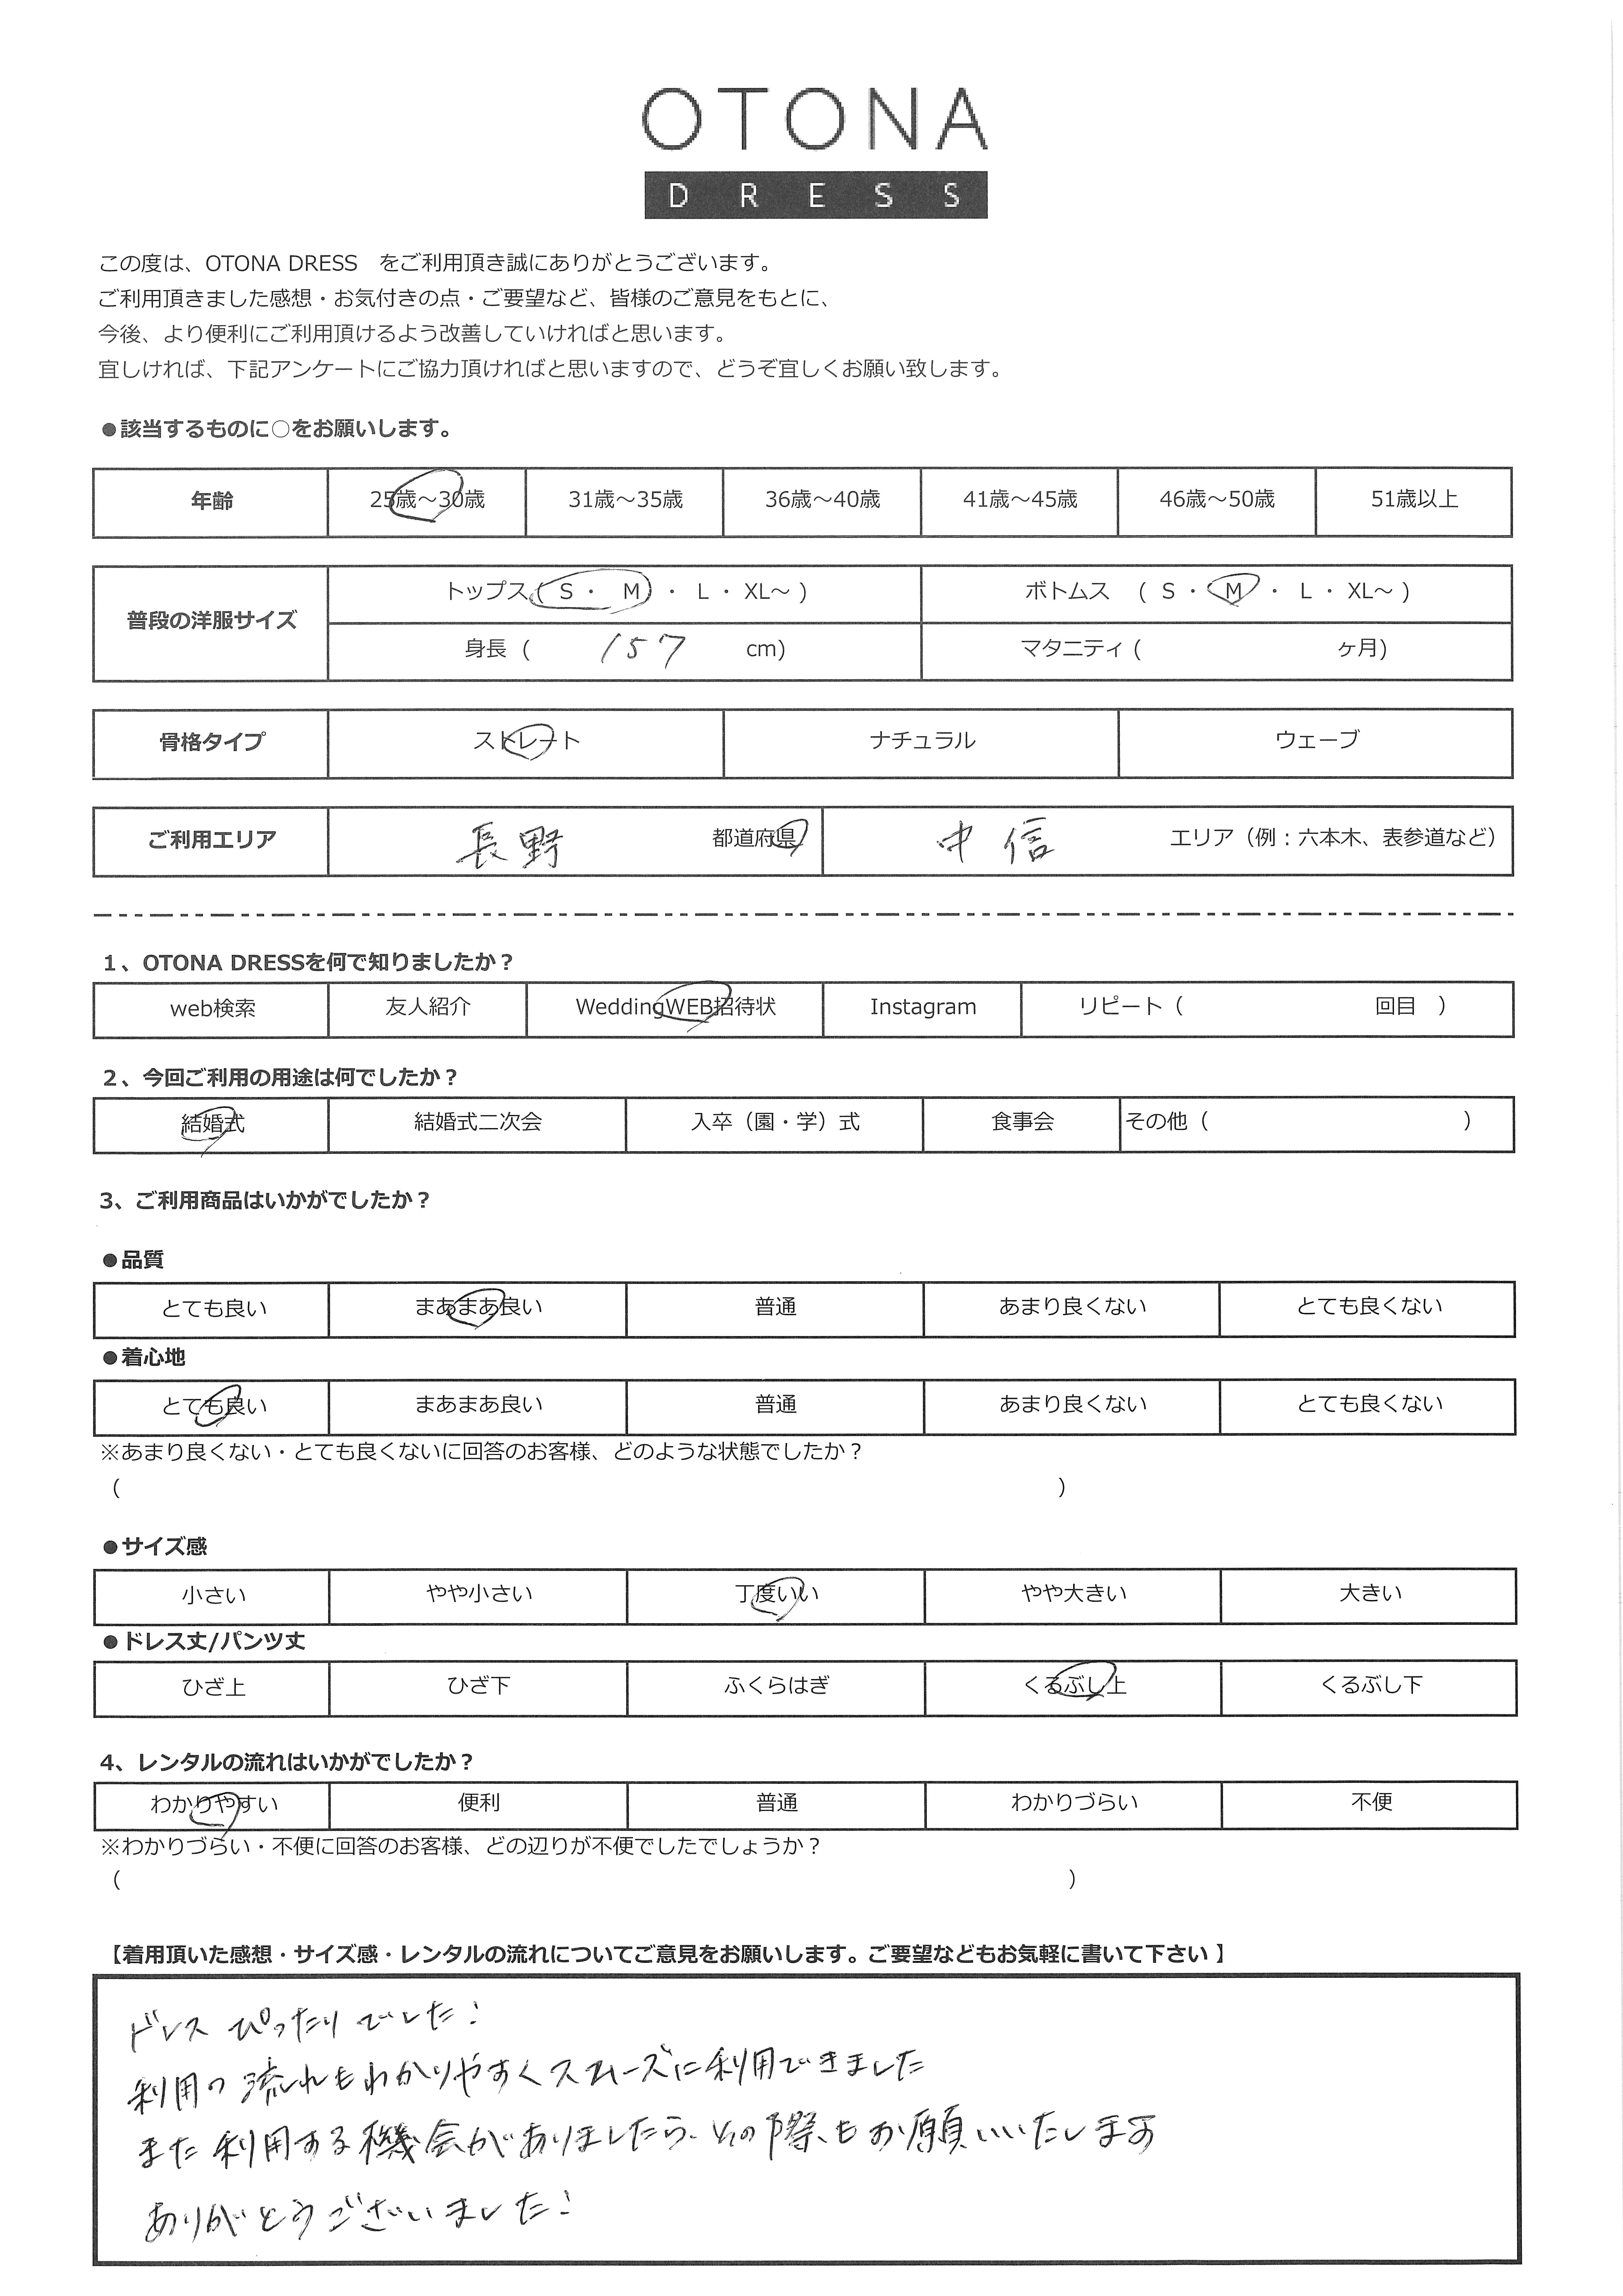 OTONA
DRESS
この度は、OTONA DRESS　をご利用頂き誠にありがとうございます。
ご利用頂きました感想・お気付きの点・ご要望など、皆様のご意見をもとに、
今後、より便利にご利用頂けるよう改善していければと思います。
宜しければ、下記アンケートにご協力頂ければと思いますので、どうぞ宜しくお願い致します。
●該当するものに○をお願いします。
年齢 25歳～30歳 31歳～35歳 36歳～40歳 41歳～45歳 46歳～50歳 51歳以上
普段の洋服サイズ トップス( S ・ M ・ L ・ XL～ ) ボトムス ( S ・ M ・ L ・ XL～ )
身長 ( 157 cm) マタニティ ( ヶ月)
骨格タイプ ストレート ナチュラル ウェーブ
ご利用エリア 長野 都道府県 中信 エリア（例：六本木、表参道など）
1、OTONA DRESSを何で知りましたか？
web検索 友人紹介 WeddingWEB招待状 Instagram リピート（ 回目 ）
2、今回ご利用の用途は何でしたか？
結婚式 結婚式二次会 入卒（園・学）式 食事会 その他（ ）
3、ご利用商品はいかがでしたか？
●品質
とても良い まあまあ良い 普通 あまり良くない とても良くない
●着心地
とても良い まあまあ良い 普通 あまり良くない とても良くない
※あまり良くない・とても良くないに回答のお客様、どのような状態でしたか？
（ ）
●サイズ感
小さい やや小さい 丁度いい やや大きい 大きい
●ドレス丈/パンツ丈
ひざ上 ひざ下 ふくらはぎ くるぶし上 くるぶし下
4、レンタルの流れはいかがでしたか？
わかりやすい 便利 普通 わかりづらい 不便
※わかりづらい・不便に回答のお客様、どの辺りが不便でしたでしょうか？
（ ）
【着用頂いた感想・サイズ感・レンタルの流れについてご意見をお願いします。ご要望などもお気軽に書いて下さい 】
ドレス ぴったりでした！
利用の流れもわかりやすくスムーズに利用できました
また利用する機会がありましたら、その際もお願いいたします
ありがとうございました！